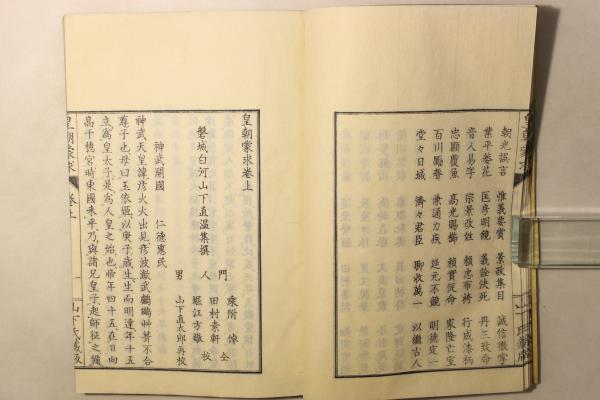 朝光誤言 惟義要賞 景政集目 誠信徹字
業平菴花 匡房明鏡 義詮決死 丹三致命
音人易字 宗景改姓 賴忠布袴 行成漆柄
忠顯覆魚 高光賜餅 賴實促命 家隆亡室
百川屬眷 兼通力疾 延元不競 明德定一
堂々日域 濟々君臣 聊收萬一 以繼古人
皇朝蒙求卷上
磐城白河山下直溫集撰
門 乘附 惇
人 田村素軒 仝
堀江方雄 校
男 山下直太郎再校
神武闢國 仁德惠民
神武天皇諱彥火火出見彥波瀲武鸕鶿艸葺不合
尊子也母曰玉依姬以庚子歲生生而明達年十五
立爲皇太子是爲人皇之始也帝年四十五在日向
高千穗宮時東國未平乃與諸兄皇子起師征之備
皇朝蒙求 卷上 一 山下氏藏版